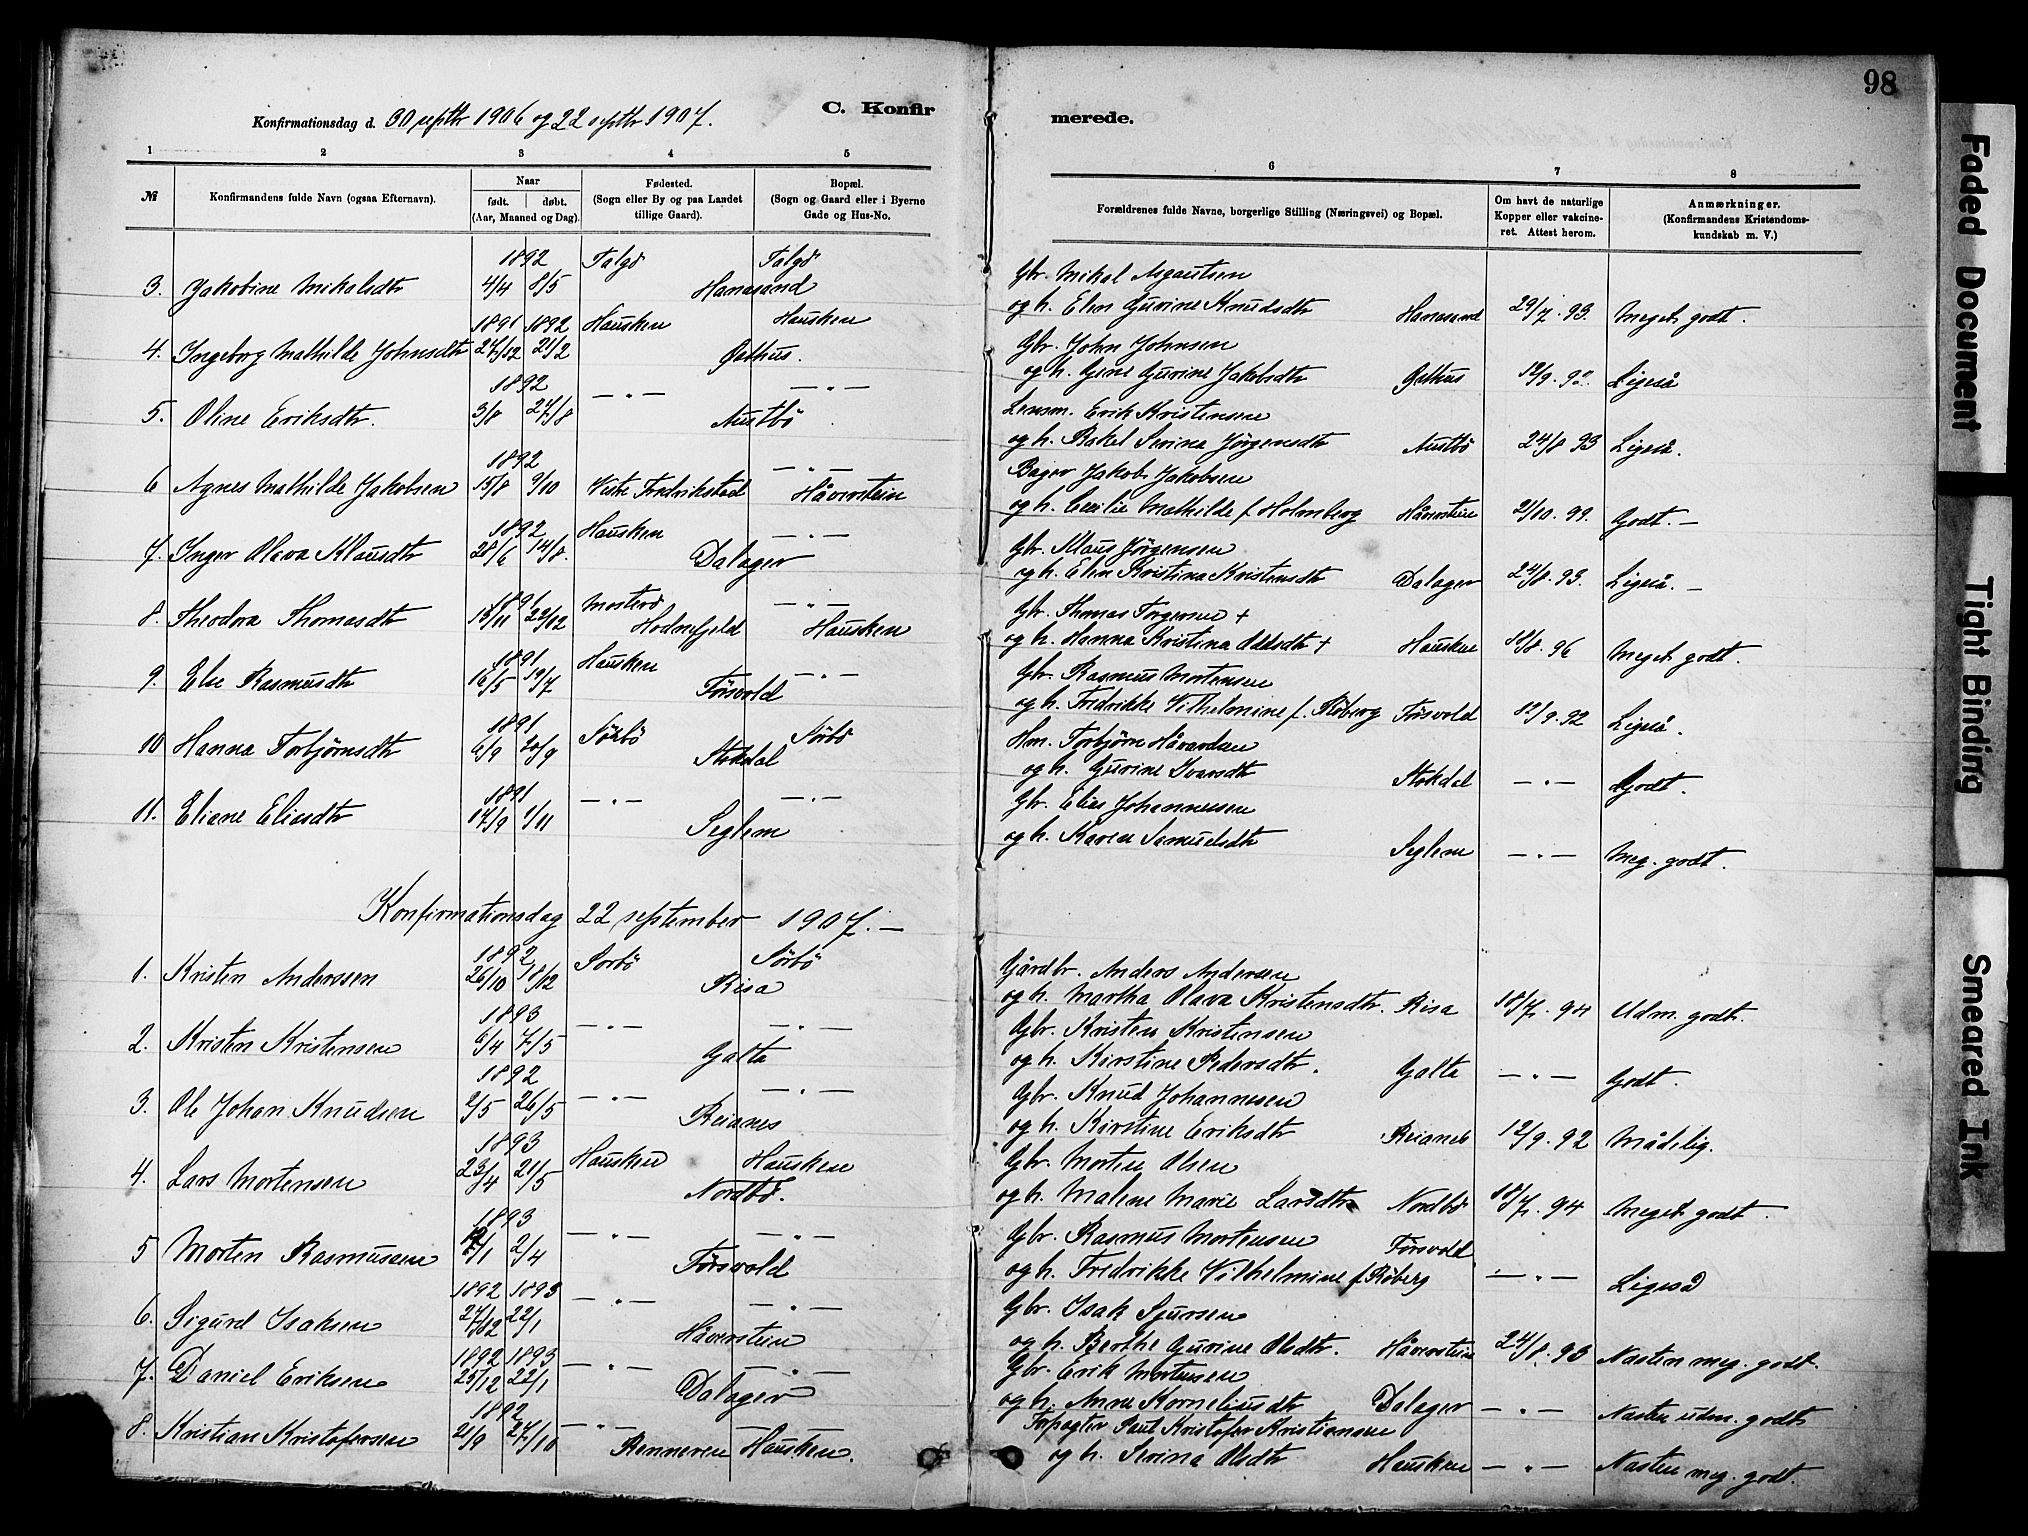 98
Konfirmationsdag d. 30 septbr 1906 og 22 septbr 1907.
C. Konfir
merede.
1 2 3 4 5 6 7 8
№
Konfirmandens fulde Navn (ogsaa Efternavn).
Naar
født. døbt.
(Aar, Maaned og Dag).
Fødested.
(Sogn eller By og paa Landet
tillige Gaard).
Bopæl.
(Sogn og Gaard eller i Byerne
Gade og Hus-No.
Forældrenes fulde Navne, borgerlige Stilling (Næringsvei) og Bopæl.
Om havt de naturlige
Kopper eller vakcine-
ret. Attest herom.
Anmærkninger.
(Konfirmandens Kristendoms-
kundskab m. V.)
1892 Talgö Talgö Gbr. Mikal Asgautsen
3. Jakobine Mikalsdtr 4/4 8/5 Hanasand og h. Elen Gurine Knudsdtr Hanasand 29/7. 93. Meget godt.
1891 1892 Hausken Hausken Gbr. John Johnsen
4. Ingeborg Mathilde Johnsdtr 27/12 21/2 Östhus. og h. Gine Gurine Jakobsdtr Östhus 12/9. 92. Ligeså
1892 — " — — " — Lensm. Erik Kristensen
5. Oline Eriksdtr. 3/8 27/8 Austbö og h. Rakel Serina Jörgensdtr Austbö 24/8 93 Ligeså.
1892 — " — Bager Jakob Jakobsen
6 Agnes Mathilde Jakobsen 15/8 9/10 Vestre Fredrikstad Håverstein og h. Cecilie Mathilde f. Holmberg Håverstein 21/10. 99. Godt. —
1892 Hausken — " — Gbr. Klaus Jörgensen
7. Inger Olava Klausdtr 28/6 14/8. Dalager og h. Elen Kristina Kristensdtr Dalager 24/8. 93. Ligeså. —
1891 Mosterö — " — Gbr. Thomas Torgersen +
8. Theodora Thomasdtr 18/11 22/12 Hodnefjeld Hausken og h. Hanna Kristina Oddsdtr + Hausken 18/8. 96 Meget godt.
1891 Hausken — " — Gbr. Rasmus Mortensen
9. Else Rasmusdtr 16/5 19/7 Försvold og h. Fredrikke Vilhelmine f. Röberg Försvold 12/9. 92 Ligeså.
1891 Sörbö Sörbö Hm. Torbjörn Håvardsen
10 Hanna Torbjörnsdtr 6/9 20/9 Stokdal og h. Gurine Ivarsdtr Stokdal — " — Godt.
1891 — " — — " — Gbr. Elias Johannessen
11. Eliane Eliasdtr 17/9 1/11 Seglem og h. Karen Samuelsdtr Seglem — " — Meg. godt.
Konfirmationsdag 22 september 1907. —
1892 Sörbö Sörbö Gårdbr. Anders Andersen
1. Kristen Anderssen 26/10 18/12 Risa og h. Martha Olava Kristensdtr. Risa 18/7. 94 Udm. godt.
1893 — " — — " — Gbr. Kristen Kristensen
2. Kristen Kristensen 6/4 7/5 Galta og h. Kirstine Pedersdtr. Galta — " — Godt.
1892 — " — — " — Gbr. Knud Johannesen
3. Ole Johan Knudsen 2/5 26/5 Reianes og h. Kirstine Eriksdtr Reianes 12/9. 92 Mådelig.
1893 Hausken Hausken Gbr. Morten Olsen
4. Lars Mortensen 23/4 21/5 Nordbö. og h. Malene Marie Larsdtr Nordbö 18/7. 94 Meget godt.
1893 — " — — " — Gbr. Rasmus Mortensen Försvold
5 Morten Rasmussen /1 2/4 Försvold og h. Fredrikke Vilhelmine f. Röberg — " — Ligeså
1892 1893 — " — — " — Gbr. Isak Sjursen
6. Sigurd Isaksen 27/12 22/1 Håverstein og h. Berthe Gurine Olsdtr. Håverstein 24/8. 93 Næsten meg. godt.
1892 1893 — " — — " — Gbr. Erik Mortensen
7. Daniel Eriksen 25/12 22/1 Dalager og h. Anne Korneliusdtr Dalager — " — Næsten udm. godt
1892 — " — Forpagter Paul Kristofer Kristiansen
8. Kristian Kristofersen 21/9 27/10 Renneren Hausken. og h. Serina Olsdtr Hausken — " — Næsten meg. godt.
Faded Document
Tight Binding
Smeared Ink